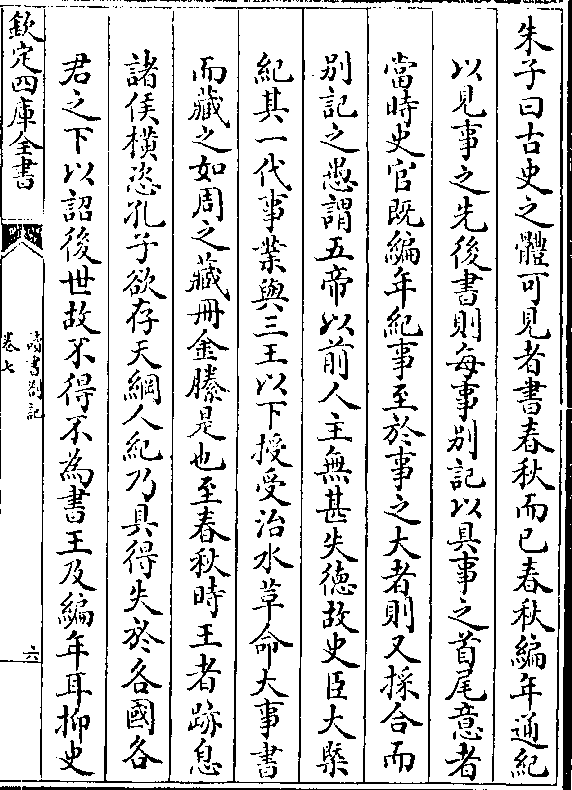 朱子曰古史之體可見者書春秋而已春秋編年通紀
以見事之先後書則每事別記以具事之首尾意者
當時史官既編年紀事至於事之大者則又採合而
別記之愚謂五帝以前人主無甚失德故史臣大槩
紀其一代事業與三王以下授受治水革命大事書
而藏之如周之藏冊金縢是也至春秋時王者跡息
諸侯橫恣孔子欲存天綱人紀乃具得失於各國各
君之下以詔後世故不得不為書王及編年耳抑史
欽定四庫全書
讀書劄記
卷七
六